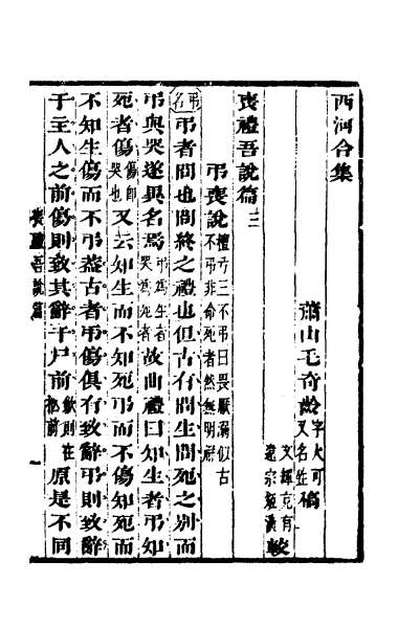 西河合集
蕭山毛奇齡字大可又名甡稿
文輝克有
遠宗 較
喪禮吾說篇三
弔喪說檀弓三不弔曰畏厭溺但古
不弔非命死者然無明辭
弔名 弔者問也問終之禮也但古有問生問死之別而
弔與哭遂異名焉弔為生者哭為死者故曲禮曰知生者弔知
死者傷傷卽哭也又云知生而不知死弔而不傷知死而
不知生傷而不弔蓋古者弔傷俱有致辭弔則致辭
于主人之前傷則致其辭于尸前斂則在柩前原是不同
喪禮吾說篇
一